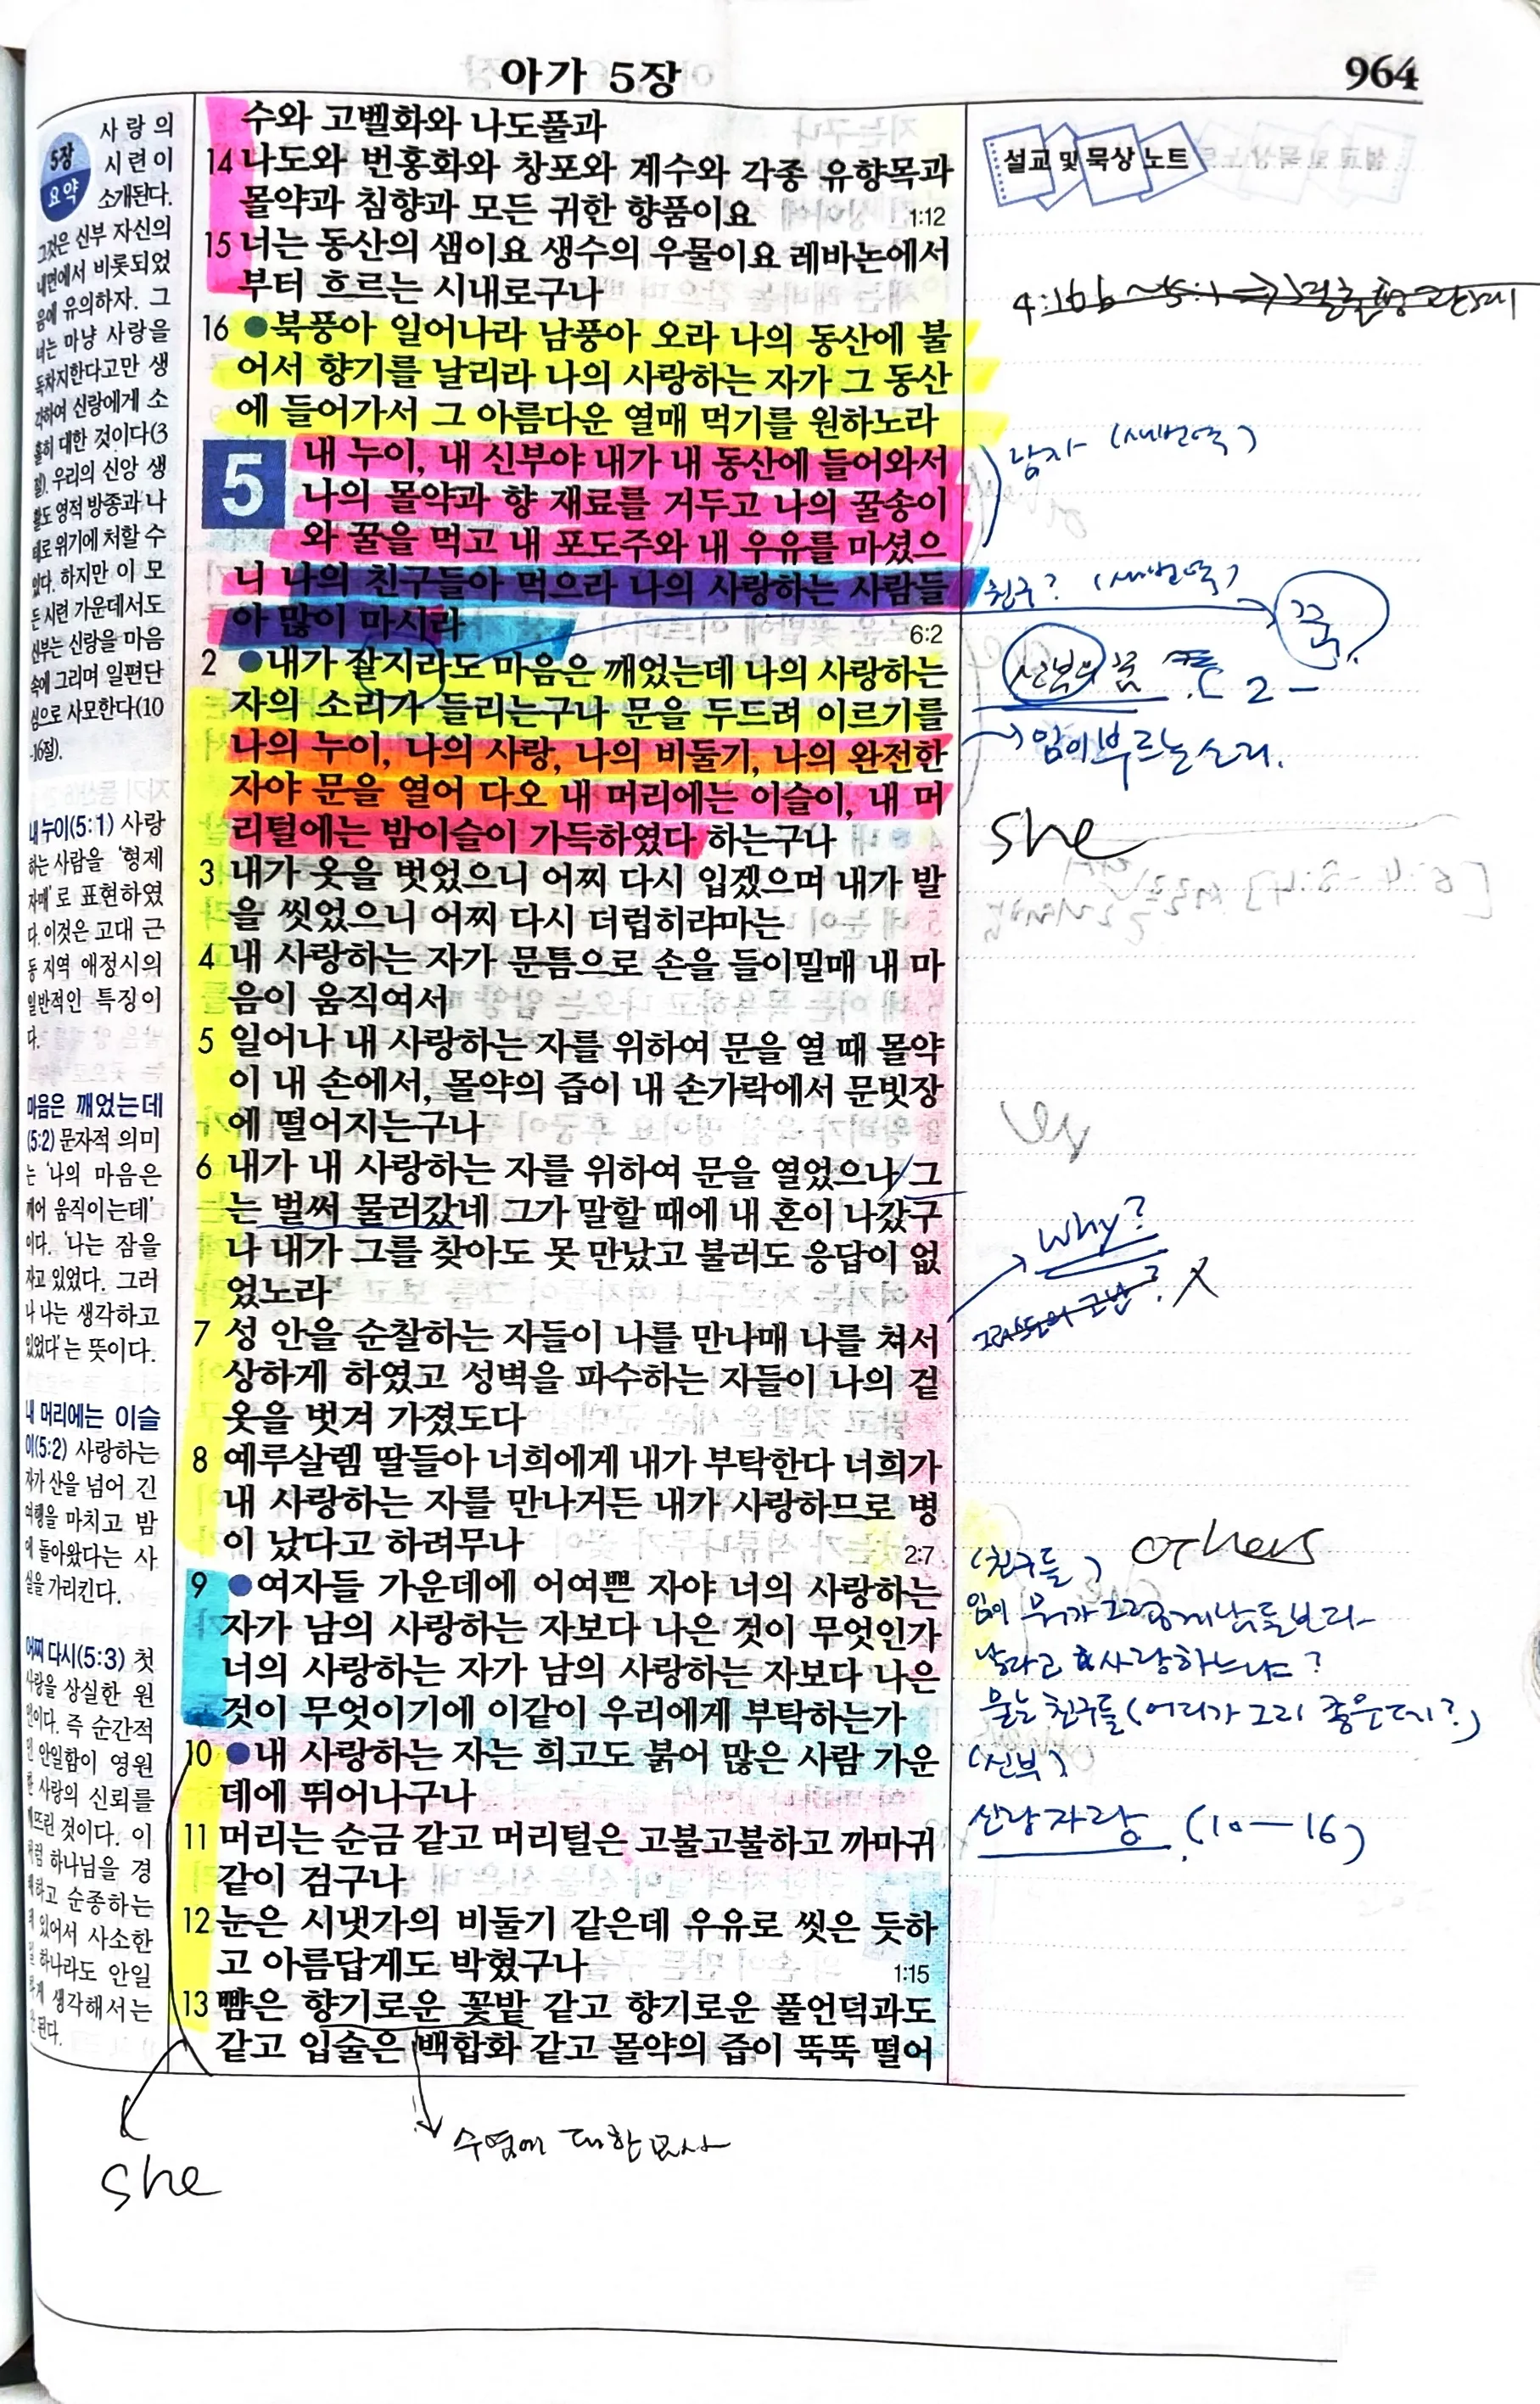 아가 5장
964
5장
요약
사랑의
시련이
소개된다.
그것은 신부 자신의
내면에서 비롯되었
음에 유의하자. 그
녀는 마냥 사랑을
독차지한다고만 생
각하여 신랑에게 소
홀히 대한 것이다(3
절). 우리의 신앙 생
활도 영적 방종과 나
태로 위기에 처할 수
있다. 하지만 이 모
든 시련 가운데서도
신부는 신랑을 마음
속에 그리며 일편단
심으로 사모한다(10
-16절).
내 누이(5:1) 사랑
하는 사람을 '형제
자매'로 표현하였
다. 이것은 고대 근
동 지역 애정시의
일반적인 특징이
다.
마음은 깨었는데
(5:2) 문자적 의미
는 '나의 마음은
깨어 움직이는데'
이다. '나는 잠을
자고 있었다. 그러
나 나는 생각하고
있었다'는 뜻이다.
내 머리에는 이슬
이(5:2) 사랑하는
자가 산을 넘어 긴
여행을 마치고 밤
에 돌아왔다는 사
실을 가리킨다.
어찌 다시(5:3) 첫
사랑을 상실한 원
인이다. 즉 순간적
인 안일함이 영원
한 사랑의 신뢰를
깨뜨린 것이다. 이
처럼 하나님을 경
외하고 순종하는
데 있어서 사소한
일 하나라도 안일
하게 생각해서는
안 된다.
수와 고벨화와 나도풀과
14 나도와 번홍화와 창포와 계수와 각종 유향목과
몰약과 침향과 모든 귀한 향품이요 1:12
15 너는 동산의 샘이요 생수의 우물이요 레바논에서
부터 흐르는 시내로구나
16 ●북풍아 일어나라 남풍아 오라 나의 동산에 불
어서 향기를 날리라 나의 사랑하는 자가 그 동산
에 들어가서 그 아름다운 열매 먹기를 원하노라
5 내 누이, 내 신부야 내가 내 동산에 들어와서
나의 몰약과 향 재료를 거두고 나의 꿀송이
와 꿀을 먹고 내 포도주와 내 우유를 마셨으
니 나의 친구들아 먹으라 나의 사랑하는 사람들
아 많이 마시라 6:2
2 ●내가 잘지라도 마음은 깨었는데 나의 사랑하는
자의 소리가 들리는구나 문을 두드려 이르기를
나의 누이, 나의 사랑, 나의 비둘기, 나의 완전한
자야 문을 열어 다오 내 머리에는 이슬이, 내 머
리털에는 밤이슬이 가득하였다 하는구나
3 내가 옷을 벗었으니 어찌 다시 입겠으며 내가 발
을 씻었으니 어찌 다시 더럽히랴마는
4 내 사랑하는 자가 문틈으로 손을 들이밀매 내 마
음이 움직여서
5 일어나 내 사랑하는 자를 위하여 문을 열 때 몰약
이 내 손에서, 몰약의 즙이 내 손가락에서 문빗장
에 떨어지는구나
6 내가 내 사랑하는 자를 위하여 문을 열었으나 그
는 벌써 물러갔네 그가 말할 때에 내 혼이 나갔구
나 내가 그를 찾아도 못 만났고 불러도 응답이 없
었노라
7 성 안을 순찰하는 자들이 나를 만나매 나를 쳐서
상하게 하였고 성벽을 파수하는 자들이 나의 겉
옷을 벗겨 가졌도다
8 예루살렘 딸들아 너희에게 내가 부탁한다 너희가
내 사랑하는 자를 만나거든 내가 사랑하므로 병
이 났다고 하려무나 2:7
9 ●여자들 가운데에 어여쁜 자야 너의 사랑하는
자가 남의 사랑하는 자보다 나은 것이 무엇인가
너의 사랑하는 자가 남의 사랑하는 자보다 나은
것이 무엇이기에 이같이 우리에게 부탁하는가
10 ●내 사랑하는 자는 희고도 붉어 많은 사람 가운
데에 뛰어나구나
11 머리는 순금 같고 머리털은 고불고불하고 까마귀
같이 검구나
12 눈은 시냇가의 비둘기 같은데 우유로 씻은 듯하
고 아름답게도 박혔구나 1:15
13 뺨은 향기로운 꽃밭 같고 향기로운 풀언덕과도
같고 입술은 백합화 같고 몰약의 즙이 뚝뚝 떨어
설교 및 묵상 노트
4:16b ~5:1 ⇒
남자 (새번역)
친구? (새번역)
꿈.
신부의 꿈 2 -
→임이 부르는 소리.
she
why?
X
(친구들) others
임이 뭐가 그렇게 남들보다
낫다고 사랑하느냐?
묻는 친구들 (어디가 그리 좋은데?)
(신부)
신랑자랑 (10-16)
수염에 대한 묘사
she